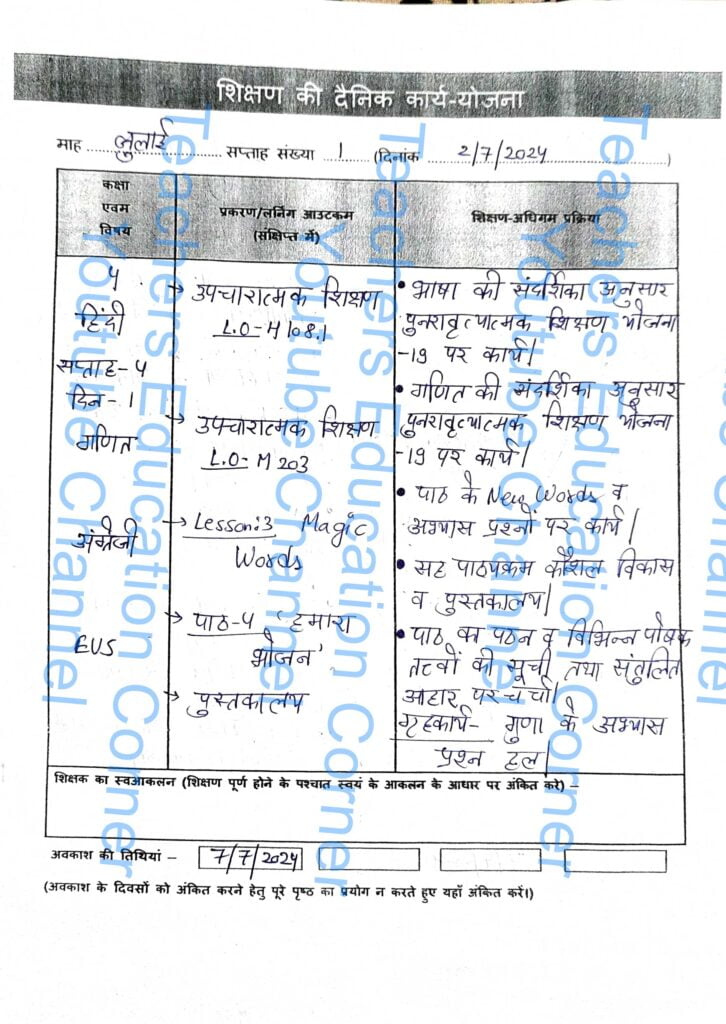 शिक्षण की दैनिक कार्य-योजना
माह जुलाई सप्ताह संख्या 1 (दिनांक 2/7/2024)
कक्षा एवम विषय
प्रकरण/लर्निंग आउटकम (संक्षिप्त में)
शिक्षण-अधिगम प्रक्रिया
५
हिंदी
सप्ताह-५
दिन-1
गणित
अंग्रेजी
EVS
→ उपचारात्मक शिक्षण
L.O-H108.1
→ उपचारात्मक शिक्षण
L.O-M203
→ Lesson:3 Magic
Words
→ पाठ-५ 'हमारा
भोजन'
→ पुस्तकालय
• भाषा की संदर्शिका अनुसार
पुनरावृत्यात्मक शिक्षण योजना
-19 पर कार्य।
• गणित की संदर्शिका अनुसार
पुनरावृत्यात्मक शिक्षण योजना
-19 पर कार्य।
• पाठ के New Words व
अभ्यास प्रश्नों पर कार्य।
• सह पाठयक्रम कौशल विकास
व पुस्तकालय।
• पाठ का पठन व विभिन्न पोषक
तत्वों की सूची तथा संतुलित
आहार पर चर्चा।
गृहकार्य- गुणा के अभ्यास
प्रश्न हल।
शिक्षक का स्वआकलन (शिक्षण पूर्ण होने के पश्चात स्वयं के आकलन के आधार पर अंकित करे) –
अवकाश की तिथियां – 7/7/2024
(अवकाश के दिवसों को अंकित करने हेतु पूरे पृष्ठ का प्रयोग न करते हुए यहाँ अंकित करें।)
Teachers Education Corner
Youtube Channel
Teachers Education Corner
Youtube Channel
Teachers Education Corner
Youtube Channel